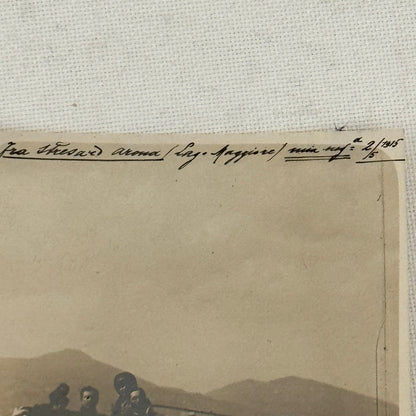 fra Stresa ed Arona (Lag. Maggiore) mia neg.ª 2/5 1915